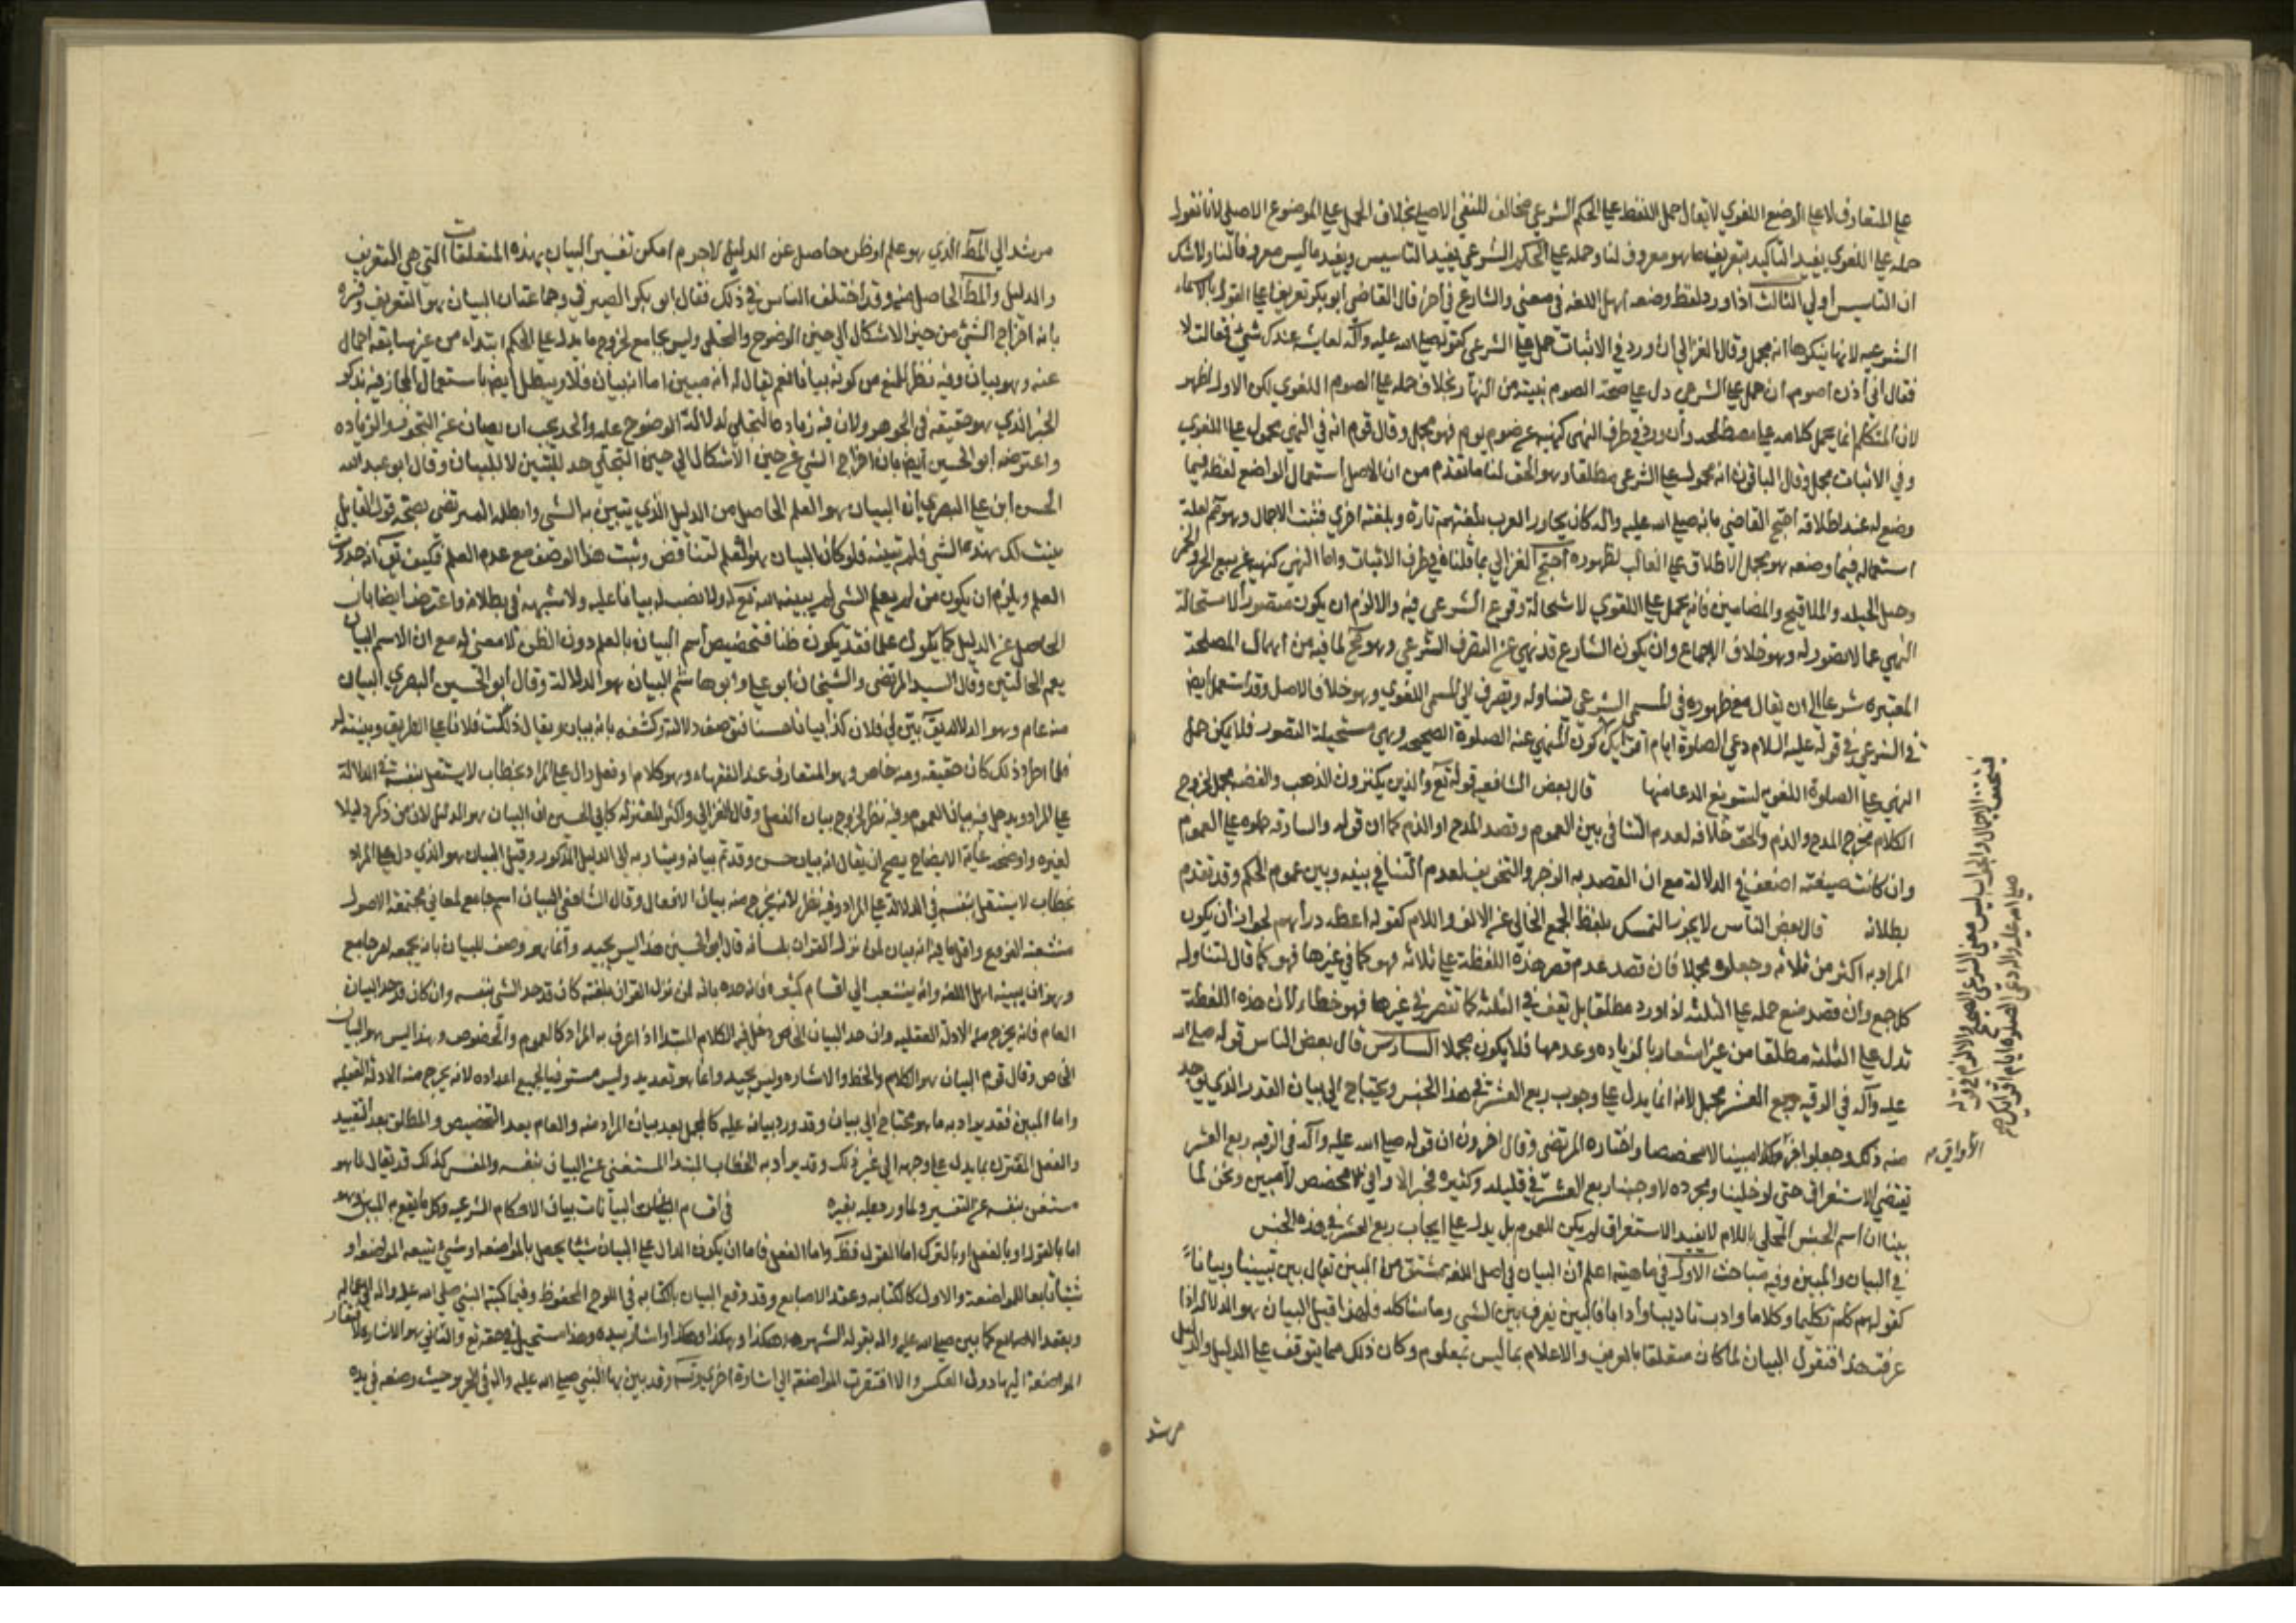 علي المتعارف لا علي الوضع اللغوي لا يقال حمل اللفظ علي الحكم الشرعي مخالف للنفي الاصلي بخلاف الحمل علي الموضوع الاصلي لانا نقول
حمله علي اللغوي يفيد التاكيد بتعريف ما هو معروف لنا وحمله علي الحكم الشرعي يفيد التاسيس ويفيد ما ليس معروفا لنا ولا شك
ان التاسيس اولي الثالث اذا ورد لفظ وضعه اهل اللغه في معني والشارع في اخر قال القاضي ابو بكر تعريفا علي القول بالاسماء
الشرعيه لانها ينكرها انه مجمل وقال الغزالي ان ورد في الاثبات حمل علي الشرعي كقوله صلي الله عليه وآله لعايشه عندك شئ فقالت لا
فقال اني اذن اصوم ان حمل علي الشرعي دل علي صحة الصوم بنية من النهار بخلاف حمله علي الصوم اللغوي لكن الاول اظهر
لان المتكلم انما يحمل كلامه علي مصطلحه وان ورد في طرف النهي كنهيه عن صوم يوم فهو مجمل وقال قوم انه في النهي محمول علي اللغوي
وفي الاثبات مجمل وقال الباقون انه محمول علي الشرعي مطلقا وهو الحق لنا ما تقدم من ان الاصل استعمال الواضع لفظه فيما
وضع له عند اطلاقه احتج القاضي بانه صلي الله عليه وآله كان يحاور العرب بلغتهم تارة وبلغته اخري فثبت الاجمال وهو
استعماله فيما وضعه هو بحمل الاطلاق علي الغالب لظهوره احتج الغزالي بما قلناه في طرف الاثبات واما النهي كنهيه عن بيع الحر والخمر
وحبل الحبله والملاقيح والمضامين فانه يحمل علي اللغوي لاستحالة وقوع الشرعي فيه والا لزم ان يكون متصورا لاستحالة
النهي عما لا تصور له وهو خلاف الاجماع وان يكون الشارع قد نهي عن التصرف الشرعي وهو مح لما فيه من اهمال المصلحة
المعتبره شرعا الا ان يقال مع ظهوره في المسمي الشرعي تناوله ويصرف الي المسمي اللغوي وهو خلاف الاصل وقد استعمل ايض
في الشرعي في قوله عليه السلام دعي الصلوة ايام اقرائك كون المنهي عنه الصلوة الصحيحه وهي مستحيلة التصور فلا يمكن حمل
النهي علي الصلوة اللغويه لتسويغ الدعا منها قال بعض الشافعيه قوله تع والذين يكنزون الذهب والفضه مجمل لخروج
الكلام مخرج المدح والذم والحق خلافه لعدم التنافي بين العموم وقصد المدح او الذم كما ان قوله والسارقه حملوه علي العموم
وان كانت صيغته اضعف في الدلالة مع ان القصد به الزجر والتخويف لعدم التنافي بينه وبين عموم الحكم وقد تقدم
بطلانه قال بعض الناس لا يجوز التمسك بلفظ الجمع الخالي عن الالف واللام كقوله اعطه دراهم لجواز ان يكون
المراد به اكثر من ثلاثه وجعلوه مجملا فان قصد عدم قصر هذه اللفظة علي ثلاثه فهو كما في غيرها فهو كما قال لتناوله
كل جمع وان قصد منع حمله علي الثلثه اذا ورد مطلقا بل يقف في الثلثه كما تقصر في غيرها فهو خطاء لان هذه اللفظة
تدل علي الثلثه مطلقا من غير اشعار بالزياده وعدمها فلا يكون مجملا السادس قال بعض الناس قوله صلي الله
عليه وآله في الرقه ربع العشر مجمل لانه انما يدل علي وجوب ربع العشر في هذا الجنس ويحتاج الي بيان القدر الذي يوخذ
منه ذلك وجعلوا خبر مبينا لا مخصصا واختاره المرتضي وقال اخرون ان قوله صلي الله عليه وآله في الرقه ربع العشر
يقتضي الاستغراق حتي لو خلينا ومجرده لاوجبنا ربع العشر في قليله وكثيره فخبر الاواقي مخصص لا مبين ونحن لما
بينا ان اسم الجنس المحلي باللام لا يفيد الاستغراق لم يكن للعموم بل يدل علي ايجاب ربع العشر في هذه الجنس
في البيان والمبين وفيه مباحث الاول في ماهيته اعلم ان البيان في اصل اللغه مشتق من المبين يقال بين تبيينا وبيانا
كقولهم كلم تكليما وكلاما وادب تاديبا وادابا فالبين يفرق بين الشئ وما شاكله فلهذا قيل البيان هو الدلاله اذا
عرفت هذا فنقول البيان لما كان متعلقا بالتعريف والاعلام بما ليس بمعلوم وكان ذلك مما يتوقف علي الدليل والدليل
الأواقي
الاجمال والجواب ليس معني الشرعي الصحيح والا لزم في قوله
صلي الله عليه وآله دعي الصلوة ايام اقرائك
مرشد
مرشد الي المط الذي هو علم او ظن حاصل عن الدليل لا جرم امكن تفسير البيان بهذه المتعلقات التي هي التعريف
والدليل والمط الحاصل منه وقد اختلف الناس في ذلك فقال ابو بكر الصيرفي وجماعة ان البيان هو التعريف وفسره
بانه اخراج الشئ من حيز الاشكال الي حيز الوضوح والتجلي وليس بجامع لخروج ما يدل علي الحكم ابتداء من غير سابقه اجمال
عنه وهو بيان وفيه نظر للمنع من كونه بيانا نعم يقال له انه مبين اما انه بيان فلا ويبطل ايض باستعمال المجاز فيه بذكر
الحيز الذي هو حقيقه في الجوهر ولان فيه زيادة التجلي لدلالة الوضوح عليه والحد يجب ان يصان عن التجوز والزياده
واعترضه ابو الحسين ايض بان اخراج الشئ عن حيز الاشكال الي حيز التجلي حد للتبيين لا للبيان وقال ابو عبد الله
الحسن ابن علي البصري ان البيان هو العلم الحاصل من الدليل الذي يتبين به الشئ وابطله المرتضي بصحة قول القايل
بينت لك هذا الشئ فلم تبينه فلو كان البيان هو العلم لتناقض وثبت هذا الوصف مع عدم العلم فكيف حدوث
العلم ويلزم ان يكون من لم يعلم الشئ لم يبينه الله تع له ولا نصب له بيانا عليه ولا شبهه في بطلانه واعترض ايضا بان
الحاصل عن الدليل كما يكون علما فقد يكون ظنا فتخصيص اسم البيان بالعلم دون الظن لا معني له مع ان الاسم البيان
يعم الحالتين وقال السيد المرتضي والشيخان ابو علي وابو هاشم البيان هو الدلالة وقال ابو الحسين البصري البيان
منه عام وهو الدلاله يق بين لي فلان كذا بيانا حسنا فتوصف دلالته وكشفه بانه بيان ويقال ذلك فلانا علي الطريق وبينته له
فلما اطرد ذلك كان حقيقه ومنه خاص وهو المتعارف عند الفقهاء وهو كلام او فعل دال علي المراد بخطاب لا يستقل بنفسه في الدلالة
علي المراد ويدخل فيه بيان العموم وفيه نظر لخروج بيان الفعل وقال الغزالي واكثر المعتزله كابي الحسين ان البيان هو الدليل لان من ذكر دليلا
لغيره واوضحه غاية الايضاح يصح ان يقال انه بيان حسن وقد تم بيانه ويشار به الي الدليل المذكور وقيل البيان هو الذي دل علي المراد
بخطاب لا يستقل بنفسه في الدلالة علي المراد وفيه نظر لانه يخرج منه بيان الافعال وقال الشافعي البيان اسم جامع لمعاني مجتمعة الاصول
متشعبة الفروع واقل ما فيه انه بيان لمن نزل القران بلسانه قال ابو الحسين هذا ليس بحد وانما هو وصف للبيان بانه يجمعه امر جامع
وهو ان يبينه اهل اللغه وانه يتشعب الي اقسام كثيره فان حده بانه لمن نزل القران بلغته كان قد حد الشئ بنفسه وان كان قد حد البيان
العام فانه يخرج منه الادلة العقليه وان حد البيان الخاص دخل فيه الكلام المبتدا اذا عرف به المراد كالعموم والخصوص وهذا ليس هو البيان
الخاص وقال قوم البيان هو الكلام والخط والاشاره وليس بحد وانما هو تعديد وليس مستوفيا لجميع اعداده لانه يخرج منه الادلة العقليه
واما المبين فقد يراد به ما هو محتاج الي بيان وقد ورد بيانه عليه كالمجمل بعد بيان المراد منه والعام بعد التخصيص والمطلق بعد التقييد
والفعل المقترن بما يدل علي وجهه الي غير ذلك وقد يراد به الخطاب المبتدا المستغني عن البيان بنفسه والمفسر كذلك قد يقال لما هو
مستغن بنفسه عن التفسير ولما ورد عليه تفسيره في اقسام البيانات بيان الاحكام الشرعيه وكل ما يقع به التبيين وهو
اما بالقول او بالفعل او بالترك اما القول فظ واما الفعل فاما ان يكون الدال علي البيان شيئا يحصل بالمواضعه او شئ يتبعه المواضعه او
شيئا تابعا للمواضعة والاول كالكتابه وعقد الاصابع وقد وقع البيان بالكتابه في اللوح المحفوظ وفيما كتبه النبي صلي الله عليه واله الي عماله
وبعقد الاصابع كما بين صلي الله عليه واله بقوله الشهر هكذا وهكذا وهكذا واشار بيده وهذا مستحيل في حقه تع والثاني هو الاشاره لافتقار
المواضعة اليها دون العكس والا افتقرت المواضعة الي اشارة اخري وتس وقد بين بها النبي صلي الله عليه واله في الحرير حيث وضعه في يده